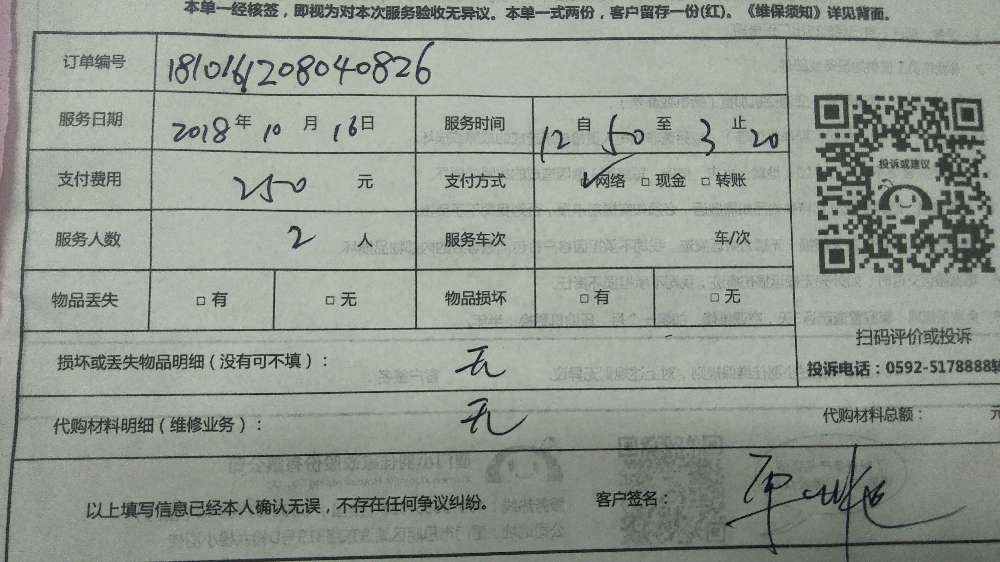 本单一经核签，即视为对本次服务验收无异议。本单一式两份，客户留存一份(红)。《维保须知》详见背面。
订单编号 1810161208040826
服务日期 2018年10月16日 服务时间 12自50至3止20
支付费用 250元 支付方式 ☑网络 □现金 □转账
投诉或建议
服务人数 2人 服务车次 车/次
物品丢失 □有 □无 物品损坏 □有 □无
扫码评价或投诉
损坏或丢失物品明细（没有可不填）： 无
投诉电话：0592-5178888转
代购材料明细（维修业务）： 无 代购材料总额： 元
以上填写信息已经本人确认无误，不存在任何争议纠纷。 客户签名：